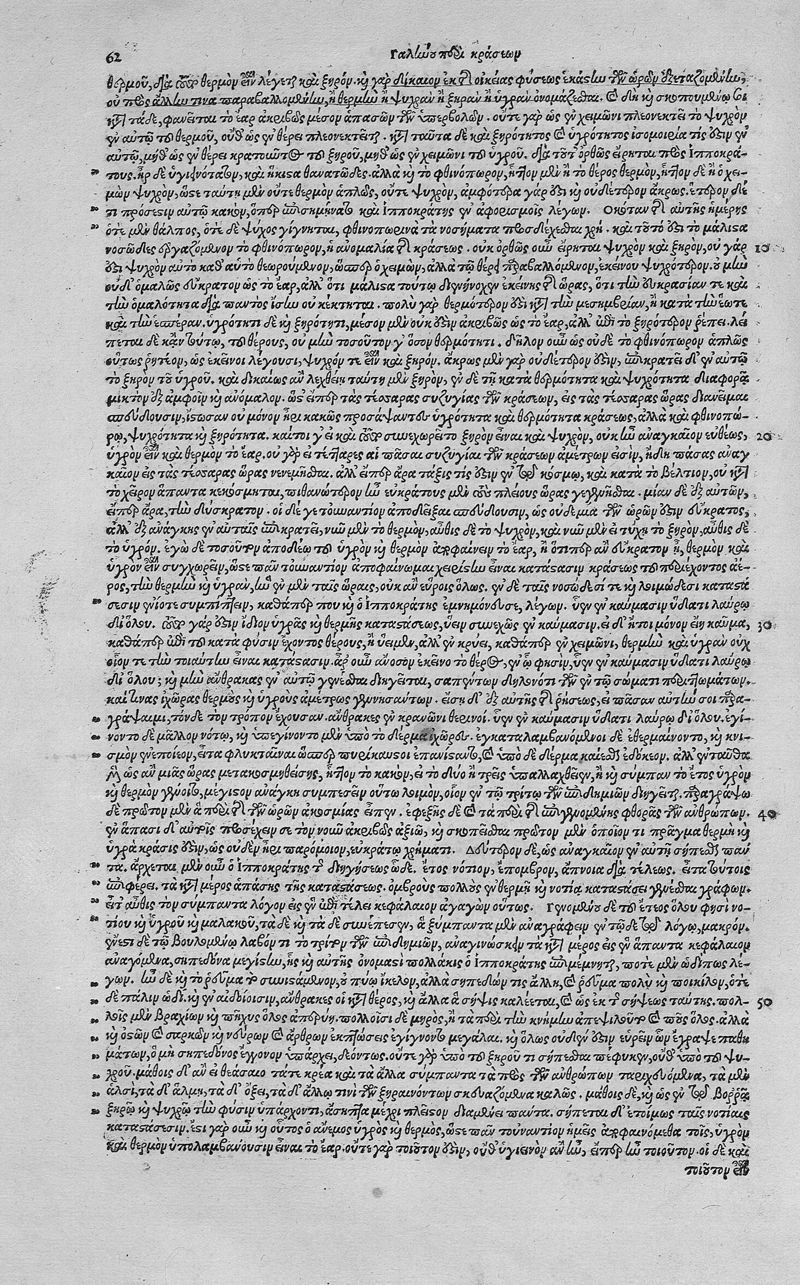 62 Γαληνοῦ περὶ κράσεων
θερμοῦ, διὰ τοῦτο θερμὸν εἶναι λέγεται καὶ ξηρόν. καὶ γὰρ δίκαιον ἐκ τῆς οἰκείας φύσεως ἑκάστην τῶν ὡρῶν ἐξεταζομένην,
οὐ πρὸς ἄλλην τινα παραβαλλομένην, ἢ θερμὴν ἢ ψυχρὰν ἢ ξηρὰν ἢ ὑγρὰν ὀνομάζεσθαι. καὶ δὴ καὶ σκοπουμένῳ σοι
κατὰ τάδε, φανεῖται τὸ ἔαρ ἀκριβῶς μέσον ἁπασῶν τῶν ὑπερβολῶν. οὔτε γὰρ ὡς ἐν χειμῶνι πλεονεκτεῖ τὸ ψυχρὸν
ἐν αὐτῷ τοῦ θερμοῦ, οὔθ' ὡς ἐν θέρει πλεονεκτεῖται. κατὰ ταῦτα δὲ καὶ ξηρότητος καὶ ὑγρότητος ἰσομοιρία τίς ἐστιν ἐν
αὐτῷ, μήθ' ὡς ἐν θέρει κρατοῦντος τοῦ ξηροῦ, μήθ' ὡς ἐν χειμῶνι τοῦ ὑγροῦ. διὰ τοῦτ' ὀρθῶς εἴρηται πρὸς Ἱπποκρά-
τους. ἦρ δὲ ὑγιεινότατον, καὶ ἥκιστα θανατῶδες. ἀλλὰ καὶ τὸ φθινόπωρον, ἧττον μὲν ἢ τὸ θέρος θερμὸν, ἧττον δὲ ἢ ὁ χει-
μὼν ψυχρὸν, ὥστε ταύτῃ μὲν οὔτε θερμὸν ἁπλῶς, οὔτε ψυχρὸν, ἀμφότερα γάρ ἐστι καὶ οὐδέτερον ἄκρως. ἕτερον δέ
τι πρόσεστιν αὐτῷ κακὸν, ὅπερ ἐπισημήνατο καὶ Ἱπποκράτης ἐν ἀφορισμοῖς λέγων. Ὁκόταν τῆς αὐτῆς ἡμέρης
ὁτὲ μὲν θάλπος, ὁτὲ δὲ ψῦχος γίγνηται, φθινοπωρινὰ τὰ νοσήματα προσδέχεσθαι χρή. καὶ τοῦτό ἐστι τὸ μάλιστα
νοσῶδες ἐργαζόμενον τὸ φθινόπωρον, ἡ ἀνομαλία τῆς κράσεως. οὐκ ὀρθῶς οὖν εἴρηται ψυχρὸν καὶ ξηρὸν, οὐ γάρ 10
ἐστι ψυχρὸν αὐτὸ καθ' αὑτὸ θεωρούμενον, ὥσπερ ὁ χειμὼν, ἀλλὰ τῷ θέρει παραβαλλόμενον, ἐκείνου ψυχρότερον. οὐ μὴν
οὐδ' ὁμαλῶς εὔκρατον ὡς τὸ ἔαρ, ἀλλ' ὅτι μάλιστα τούτῳ διενήνοχεν ἐκείνης τῆς ὥρας, ὅτι τὴν εὐκρασίαν τε καὶ
τὴν ὁμαλότητα διὰ παντὸς ἴσην οὐ κέκτηται. πολὺ γὰρ θερμότερόν ἐστι κατὰ τὴν μεσημβρίαν, ἢ κατὰ τὴν ἕω τε
καὶ τὴν ἑσπέραν. ὑγρότητι δὲ καὶ ξηρότητι, μέσον μὲν οὐκ ἔστιν ἀκριβῶς ὡς τὸ ἔαρ, ἀλλ' ἐπὶ τὸ ξηρότερον ῥέπει. λεί
πεται δὲ κἀν τούτῳ, τοῦ θέρους, οὐ μὴν τοσοῦτόν γ' ὅσον θερμότητι. δῆλον οὖν ὡς οὐδὲ τὸ φθινόπωρον ἁπλῶς
οὕτως ῥητέον, ὡς ἐκεῖνοι λέγουσι, ψυχρόν τε εἶναι καὶ ξηρόν. ἄκρως μὲν γὰρ οὐδέτερόν ἐστιν, ἐπικρατεῖ δ' ἐν αὐτῷ
τὸ ξηρὸν τοῦ ὑγροῦ. καὶ δικαίως ἂν λεχθείη ταύτῃ μὲν ξηρὸν, ἐν δὲ τῇ κατὰ θερμότητα καὶ ψυχρότητα διαφορᾷ
μικτὸν ἐξ ἀμφοῖν καὶ ἀνόμαλον. ὥστ' εἴπερ τὰς τέσσαρας συζυγίας τῶν κράσεων, εἰς τὰς τέσσαρας ὥρας διανεῖμαι
σπεύδουσιν, ἴστωσαν οὐ μόνον ἦρι κακῶς προσάψαντες ὑγρότητα καὶ θερμότητα κράσεως, ἀλλὰ καὶ φθινοπώ-
ρῳ, ψυχρότητα καὶ ξηρότητα. καίτοι γ' εἰ καὶ τοῦτο συνεχωρεῖτο ξηρὸν εἶναι καὶ ψυχρὸν, οὐκ ἦν ἀναγκαῖον εὐθέως, 20
ὑγρὸν εἶναι καὶ θερμὸν τὸ ἔαρ. οὐ γὰρ εἰ τέτταρες αἱ πᾶσαι συζυγίαι τῶν κράσεων ἀμέτρων εἰσὶν, ἤδη πάσας ἀναγ
καῖον εἰς τὰς τέσσαρας ὥρας νενεμῆσθαι. ἀλλ' εἴπερ ἄρα τάξις τίς ἐστιν ἐν τῷ κόσμῳ, καὶ κατὰ τὸ βέλτιον, οὐ κατὰ
τὸ χεῖρον ἅπαντα κεκόσμηται, πιθανώτερον ἦν εὐκράτους μὲν τὰς πλείους ὥρας γεγενῆσθαι. μίαν δὲ ἐξ αὐτῶν,
εἴπερ ἄρα, τὴν δύσκρατον. οἱ δέ γε τοὐναντίον ἀποδεῖξαι σπεύδουσιν, ὡς οὐδεμία τῶν ὡρῶν ἐστιν εὔκρατος,
ἀλλ' ἐξ ἀνάγκης ἐν αὐταῖς ἐπικρατεῖ, νῦν μὲν τὸ θερμὸν, αὖθις δὲ τὸ ψυχρὸν, καὶ νῦν μὲν εἰ τύχῃ τὸ ξηρὸν, αὖθις δὲ
τὸ ὑγρόν. ἐγὼ δὲ τοσοῦτον ἀποδέω τοῦ ὑγρὸν καὶ θερμὸν ἀποφαίνειν τὸ ἔαρ, ἢ ὅτιπερ ἂν εὔκρατον ᾖ, θερμὸν καὶ
ὑγρὸν εἶναι συγχωρεῖν, ὥστε πᾶν τοὐναντίον ἀποφαίνομαι χειρίστην εἶναι κατάστασιν κράσεως τοῦ περιέχοντος ἀέ-
ρος, τὴν θερμὴν καὶ ὑγρὰν, ἣν ἐν μὲν ταῖς ὥραις, οὐκ ἂν εὕροις ὅλως. ἐν δὲ ταῖς νοσώδεσί τε καὶ λοιμώδεσι καταστά
σεσιν ἐνίοτε συμπίπτειν, καθάπερ που καὶ ὁ Ἱπποκράτης ἐμνημόνευσε, λέγων. ὗεν ἐν καύμασιν ὕδατι λαύρῳ
δι' ὅλου. τοῦτο γάρ ἐστιν ἴδιον ὑγρᾶς καὶ θερμῆς καταστάσεως, ὕειν συνεχῶς ἐν καύμασιν. εἰ δ' ἤτοι μόνον εἴη καῦμα, 30
καθάπερ ἐπὶ τοῦ κατὰ φύσιν ἔχοντος θέρους, ἢ ὕει μὲν, ἀλλ' ἐν κρύει, καθάπερ ἐν χειμῶνι, θερμὴν καὶ ὑγρὰν οὐχ
οἷόν τε τὴν τοιαύτην εἶναι κατάστασιν. ἆρ' οὖν ἄνοσον ἐκεῖνο τὸ θέρος, ἐν ᾧ φησιν, ὗεν ἐν καύμασιν ὕδατι λαύρῳ
δι' ὅλου; καὶ μὴν ἄνθρακας ἐν αὐτῷ γενέσθαι διηγεῖται, σαπέντων δηλονότι τῶν ἐν τῷ σώματι περιττωμάτων.
καί τινας ἰχῶρας θερμοὺς καὶ ὑγροὺς ἀμέτρως γεννησάντων. εἴσῃ δ' ἐξ αὐτῆς τῆς ῥήσεως, εἰ πᾶσαν αὐτήν σοι παρα-
γράψαιμι, τόνδε τὸν τρόπον ἔχουσαν. ἄνθρακες ἐν κρανῶνι θερινοί. ὗεν ἐν καύμασιν ὕδατι λαύρῳ δι' ὅλου. ἐγί-
νοντο δὲ μᾶλλον νότῳ, καὶ ὑπεγίνοντο μὲν ὑπὸ τὸ δέρμα ἰχῶρες. ἐγκαταλαμβανόμενοι δὲ ἐθερμαίνοντο, καὶ κνι-
σμὸν ἐνεποίεον, εἶτα φλυκταῖναι ὥσπερ πυρίκαυστοι ἐπανίσταντο, καὶ ὑπὸ δὲ δέρμα καίεσθαι ἐδόκεον. ἀλλ' ἐνταῦθα
μὲν ὡς ἂν μιᾶς ὥρας μετακοσμηθείσης, ἧττον τὸ κακὸν, εἰ τὸ δύο ἢ τρεῖς ὑπαλλαχθεῖεν, ἢ καὶ σύμπαν τὸ ἔτος ὑγρὸν
καὶ θερμὸν γένοιτο, μέγιστον ἀνάγκη συμπεσεῖν οὕτω λοιμὸν, οἷον ἐν τῷ τρίτῳ τῶν ἐπιδημιῶν διηγεῖται. παραγράψω
δὲ πρῶτον μὲν ἃ περὶ τῆς τῶν ὡρῶν ἀκοσμίας εἶπεν. ἐφεξῆς δὲ καὶ τὰ περὶ τῆς ἐπιγενομένης φθορᾶς τῶν ἀνθρώπων. 40
ἐν ἅπασι δ' αὐτοῖς προσέχειν σε τὸν νοῦν ἀκριβῶς ἀξιῶ, καὶ σκοπεῖσθαι πρῶτον μὲν ὁποῖόν τι πρᾶγμα θερμὴ καὶ
ὑγρὰ κρᾶσίς ἐστιν, ὡς οὐδὲν ἦρι παρόμοιον, εὐκράτῳ χρήματι. Δεύτερον δὲ, ὡς ἀναγκαῖον ἐν αὐτῇ σήπεσθαι πάν
τα. ἄρχεται μὲν οὖν ὁ Ἱπποκράτης τῆς διηγήσεως ὧδε. ἔτος νότιον, ἔπομβρον, ἄπνοια διὰ τέλεος. εἶτα τούτοις
ἐπιφέρει. τὰ κατὰ μέρος ἁπάσης τῆς καταστάσεως. ὄμβρους πολλοὺς ἐν θερμῇ καὶ νοτίᾳ καταστάσει γενέσθαι γράφων.
εἶτ' αὖθις τὸν σύμπαντα λόγον εἰς ἓν ἐπί τελει κεφάλαιον ἀγαγὼν οὕτως. Γενομένου δὲ τοῦ ἔτεος ὅλου φησὶ νο-
τίου καὶ ὑγροῦ καὶ μαλακοῦ, τάδε καὶ τάδε συνέπεσεν, ἃ ξύμπαντα μὲν ἀναγράφειν ἐν τῷδε τῷ λόγῳ, μακρόν.
ἔνεστι δὲ τῷ βουλομένῳ λαβόντι τὸ τρίτον τῶν ἐπιδημιῶν, ἀναγινώσκειν τὰ κατὰ μέρος εἰς ἓν ἅπαντα κεφάλαιον
ἀναγόμενα, σηπεδόνα μεγίστην, ἧς καὶ αὐτῆς ὀνομαστὶ πολλάκις ὁ Ἱπποκράτης ἐπιμέμνηται, ποτὲ μὲν ὡδί πως λέ-
γων. ἦν δὲ καὶ τὸ ῥεῦμα τὸ συνιστάμενον, οὐ πύῳ ἴκελον, ἀλλὰ σηπεδών τις ἄλλη, καὶ ῥεῦμα πολὺ καὶ ποικίλον, ὁτὲ
δὲ πάλιν ὡδί. καὶ ἐν αἰδοίοισιν, ἄνθρακες οἱ κατὰ θέρος, καὶ ἄλλα ἃ σῆψις καλέεται, καὶ ὡς ἐκ τῆς σήψεως ταύτης. πολ- 50
λοῖς μὲν βραχίων καὶ πῆχυς ὅλος ἀπερρύη. πολλοῖσι δὲ μηρὸς, ἢ τὰ περὶ τὴν κνήμην ἀπεψιλοῦτο καὶ ποὺς ὅλος. ἀλλὰ
καὶ ὀστῶν καὶ σαρκῶν καὶ νεύρων καὶ ἄρθρων ἐκπτώσεις ἐγίγνοντο μεγάλαι. καὶ ὅλως οὐδέν ἐστιν εὑρεῖν ὧν ἔγραψε παθη
μάτων, ὃ μὴ σηπεδόνος ἔγγονον ὑπάρχει, δεόντως. οὔτε γὰρ ὑπὸ τοῦ ξηροῦ τι σήπεσθαι πέφυκεν, οὔθ' ὑπὸ τοῦ ψυ-
χροῦ. μάθοις δ' ἂν εἰ θεάσαιο τά τε κρέα καὶ τὰ ἄλλα σύμπαντα τὰ πρὸς τῶν ἀνθρώπων ταριχευόμενα, τὰ μὲν
ἁλσὶ, τὰ δ' ἅλμῃ, τὰ δ' ὄξει, τὰ δ' ἄλλῳ τινὶ τῶν ξηραινόντων σκευαζόμενα καλῶς. μάθοις δὲ, καὶ ὡς ἐν τῷ βορρᾷ
ξηρῷ καὶ ψυχρῷ τὴν φύσιν ὑπάρχοντι, ἄσηπτα μέχρι πλείστου διαμένει πάντα. σήπεται δ' ἑτοίμως ταῖς νοτίαις
καταστάσεσιν. ἔστι γὰρ οὖν καὶ οὗτος ὁ ἄνεμος ὑγρὸς καὶ θερμὸς, ὥστε πᾶν τοὐναντίον ἡμεῖς ἀποφαινόμεθα τοῖς, ὑγρὸν
καὶ θερμὸν ὑπολαμβάνουσιν εἶναι τὸ ἔαρ. οὔτε γὰρ τοιοῦτόν ἐστιν, οὔθ' ὑγιεινὸν ἂν ἦν, εἴπερ ἦν τοιοῦτον. οἱ δὲ καὶ
τοιοῦτον εἶναι